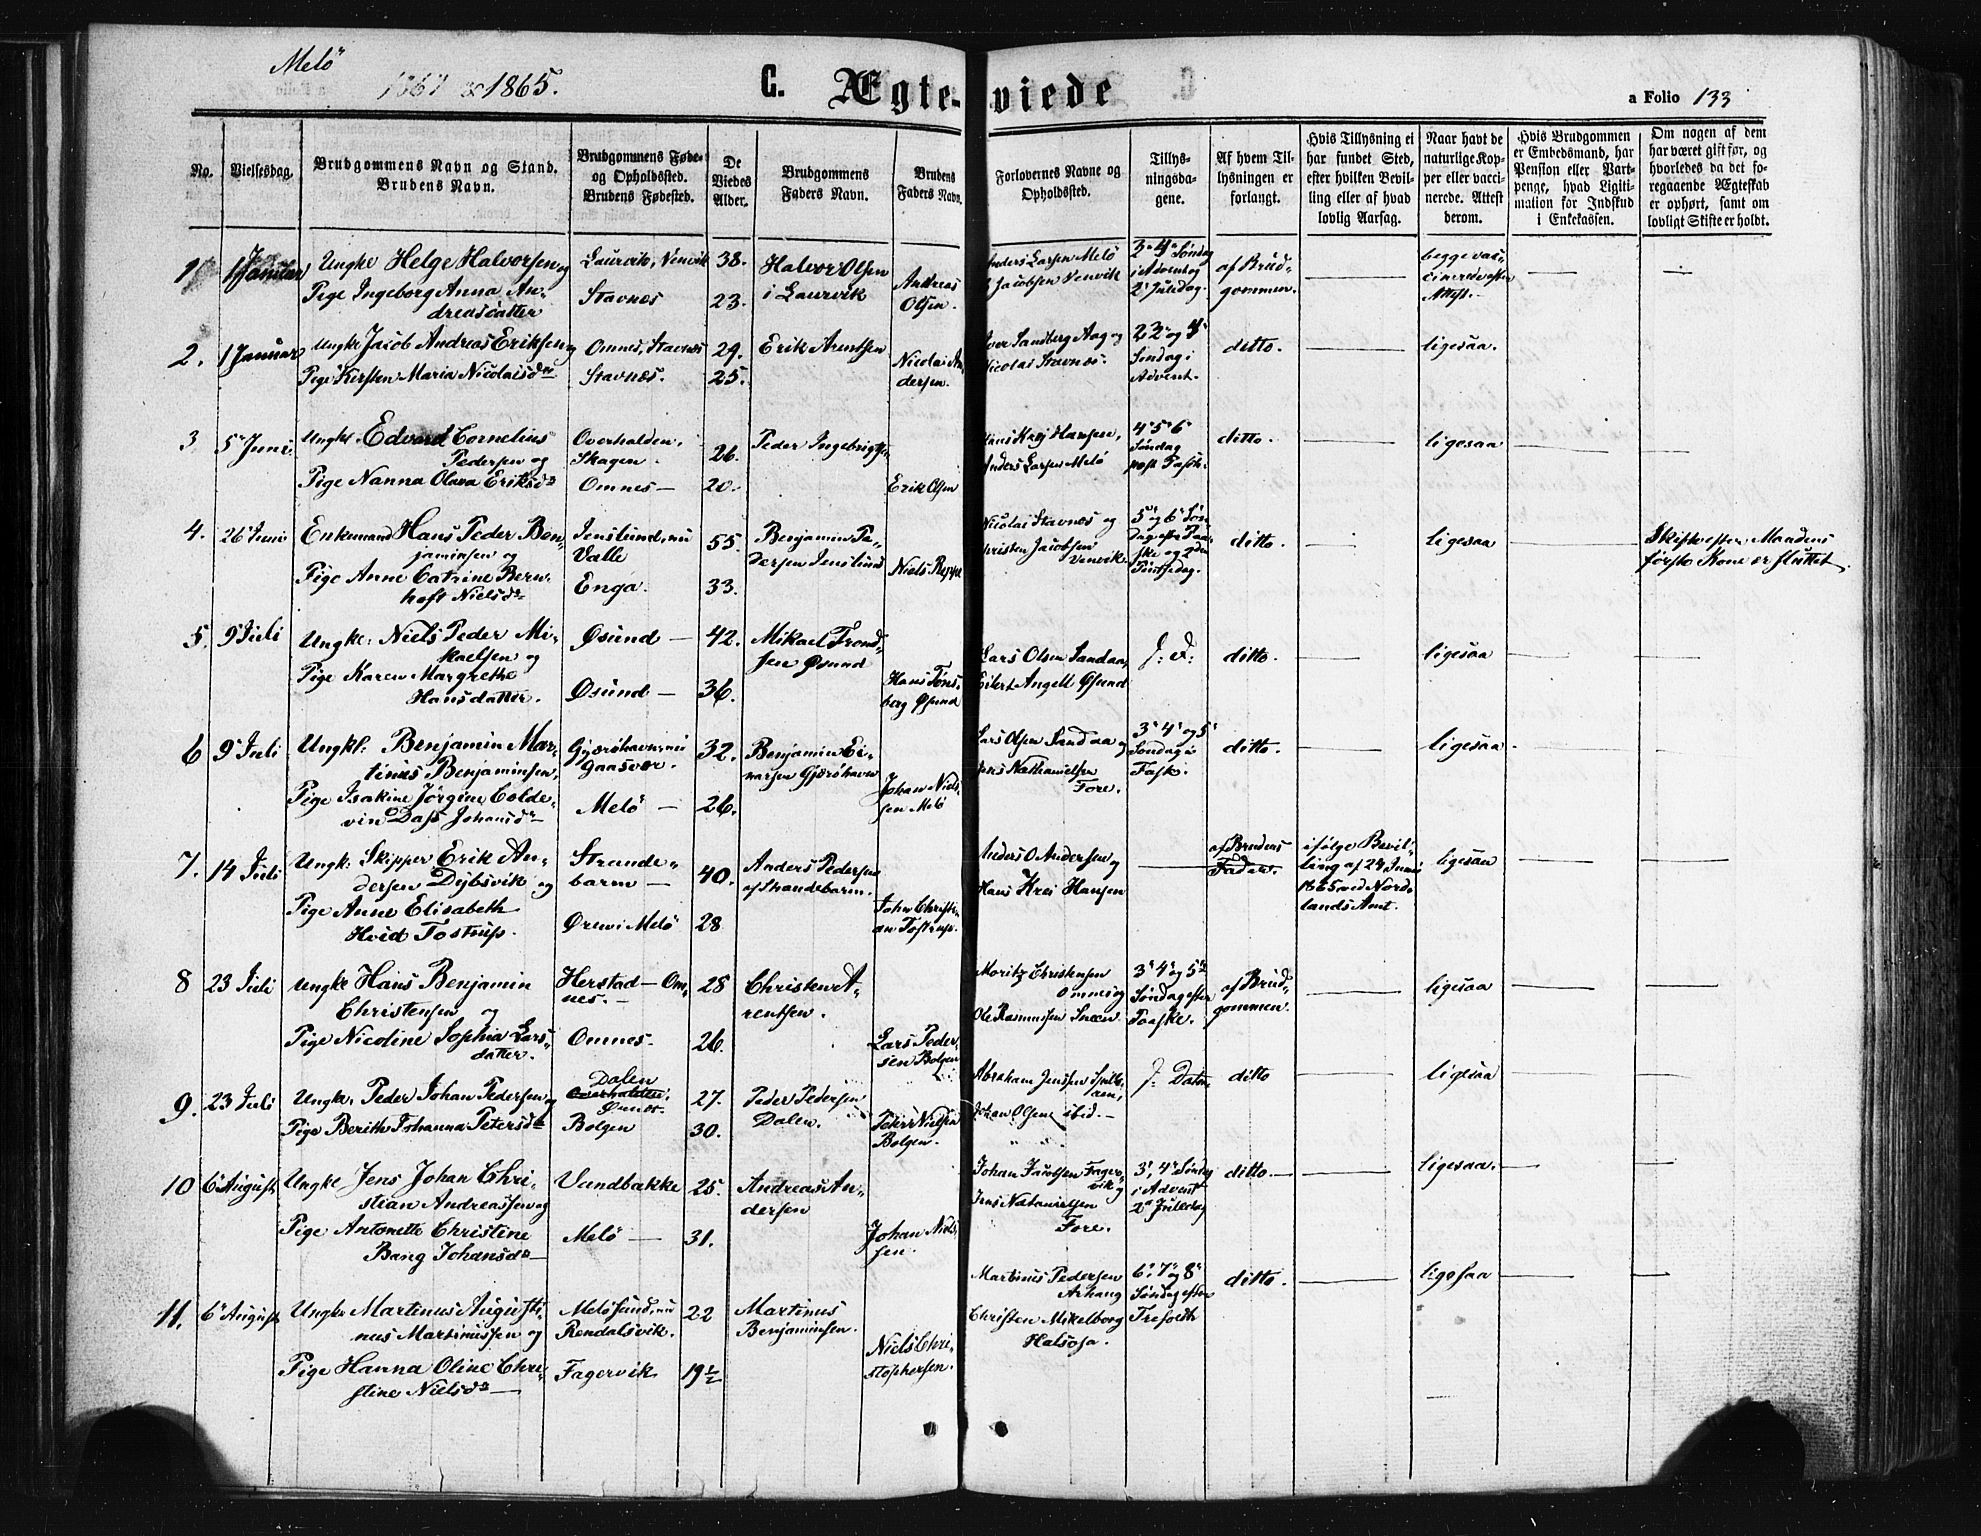 Melö
1865.
C. Ægte-viede
C.
a Folio 133
No.
Vielsesdag.
Brudgommens Navn og Stand.
Brudens Navn.
Brudgommens Føde-
og Opholdssted.
Brudens Fødested.
De
Viedes
Alder.
Brudgommens
Faders Navn.
Brudens
Faders Navn.
Forlovernes Navne og
Opholdssted.
Tillys-
ningsda-
gene.
Af hvem Til-
lysningen er
forlangt.
Hvis Tillysning ei
har fundet Sted,
efter hvilken Bevil-
ling eller af hvad
lovlig Aarsag.
Naar havt de
naturlige Kop-
per eller vacci-
nerede. Attest
derom.
Hvis Brudgommen
er Embedsmand, har
Pension eller Vart-
penge, hvad Ligiti-
mation for Indskud
i Enkekassen.
Om nogen af dem
har været gift før, og
hvorledes da det fo-
regaaende Ægteskab
er ophørt, samt om
lovligt Skifte er holdt.
1 1 Januar Ungke Helge Halvorsen og
Pige Ingeborg Anna An-
dreasdatter
Laurvik, Venvik 38.
Stavnes 23.
Halvor Olsen
i Laurvik
Andreas
Olsen.
Anders Larsen Melö
Jacobsen Venvik
3e 4e Søndag
i Advent og
2 Juledag.
af Brud-
gommen.
begge vac-
cinered efter
Attest.
2. 1 Januar Ungke Jacob Andreas Eriksen og
Pige Kirsten Maria Nicolaisdr
Omnes, Stavnes 29.
Stavnes. 25.
Erik Arentsen
Nicolai An-
dersen.
Sandberg Aag og
Nicolai Stavnes.
2 3 og 4
Søndag i
Advent.
ditto.
ligesaa.
3 5 Juni Ungk. Edvard Cornelius
Pedersen og
Pige Nanna Olava Eriksdr
Overhalden,
Skagen. 26.
Omnes 20.
Peder Ingebrigtsen
Erik Olsen
Hans Krej Hansen,
Anders Larsen Melö
4 5 6
Søndag
post Pasch.
ditto.
ligesaa
4. 26 Juni Enkemand Hans Peder Ben-
jaminsen og
Pige Anne Catrine Bern-
hoft Nielsdr
Jenslund, nu
Valle 55.
Enga. 33.
Benjamin Pe-
dersen Jenslund
Niels Reppe
Nicolai Stavnes og
Christen Jacobsen
Venvik.
5 og 6 Søn-
dag efter Paa-
ske og 2den
Pintsedag.
ditto.
ligesaa
Skifte efter Mandens
første Kone er sluttet.
5. 9 Juli Ungke: Niels Peder Mi-
kaelsen og
Pige Karen Margrethe
Hansdatter.
Øsund 42.
Øsund 36.
Mikael Trond-
sen Øsund
Hans Töns-
berg Øsund
Lars Olsen Sandaa,
Eilert Angell Øsund
J: D:
ditto.
ligesaa
6 9 Juli Ungk: Benjamin Mar-
tinus Benjaminsen,
Pige Isakine Jørgine Colde-
vin Dass Johansdr
Gjerøhavn, nu
Gaasvær. 32.
Melö 26.
Benjamin Ei-
narsen Gjerøhavn
Johan Niel-
sen Melö
Lars Olsen Sandaa og
Jens Nathanielsen
Fore.
3 4 og 5
Søndag i
Fask.
ditto.
ligesaa
7. 14 Juli Ungk: Skipper Erik An-
dersen Dybsvik og
Pige Anne Elisabeth
Hvid Tostrup.
Strande-
barm 40.
Ørnes i Melö 28
Anders Pedersen
af Strandebarm.
John Christi-
an Tostrup.
Anders O Andersen og
Hans Krei Hansen
af Brudens
Fader.
ifølge Bevil-
ling af 24 Juni
1865 ved Nord-
lands Amt.
ligesaa
8 23 Juli Ungke Hans Benjamin
Christensen og
Pige Nicoline Sophia Lars-
datter.
Herstad – Om-
nes. 28
Omnes. 26.
Christen A-
rentsen.
Lars Peder-
sen Bolgen
Moritz Christensen
Omnes og
Ole Rasmussen Sneen
3 4 og 5te
Søndag efter
Paaske.
af Brud-
gommen.
ligesaa
9. 23 Juli Ungke. Peder Johan Pedersen og
Pige Berith Johanna Petersdr
Dalen
Overhalden,
27.
Bolgen 30.
Peder Pedersen
Dalen.
Peter Nielsen
Bolgen.
Abraham Jenssen
Johan Olsen ibid.
J. Dato
ditto
ligesaa
10 6 August Ungke Jens Johan Chri-
stian Andreassen og
Pige Antonette Christine
Bang Johansdr
Vundbakke 25.
Melö 31.
Andreas An-
dersen
Johan Niel-
sen.
Johan Jacobsen Fager-
vik og
Jens Natanielsen
Fore.
3, 4 Søndag
i Advent
2e Juledag
ditto
ligesaa.
11. 6 August Ungke Martinus Augusti-
nus Martinussen og
Pige Hanna Oline Chri-
stine Nielsdr
Melösund, nu
Rendalsvik. 22
Fagervik 19½
Martinus
Benjaminsen.
Niels Chri-
stophersen.
Martinus Pedersen
Arhaug
Christen Mikelborg
Halsosa.
6. 7 og 8
Søndag efter
Trefoldh
ditto.
ligesaa